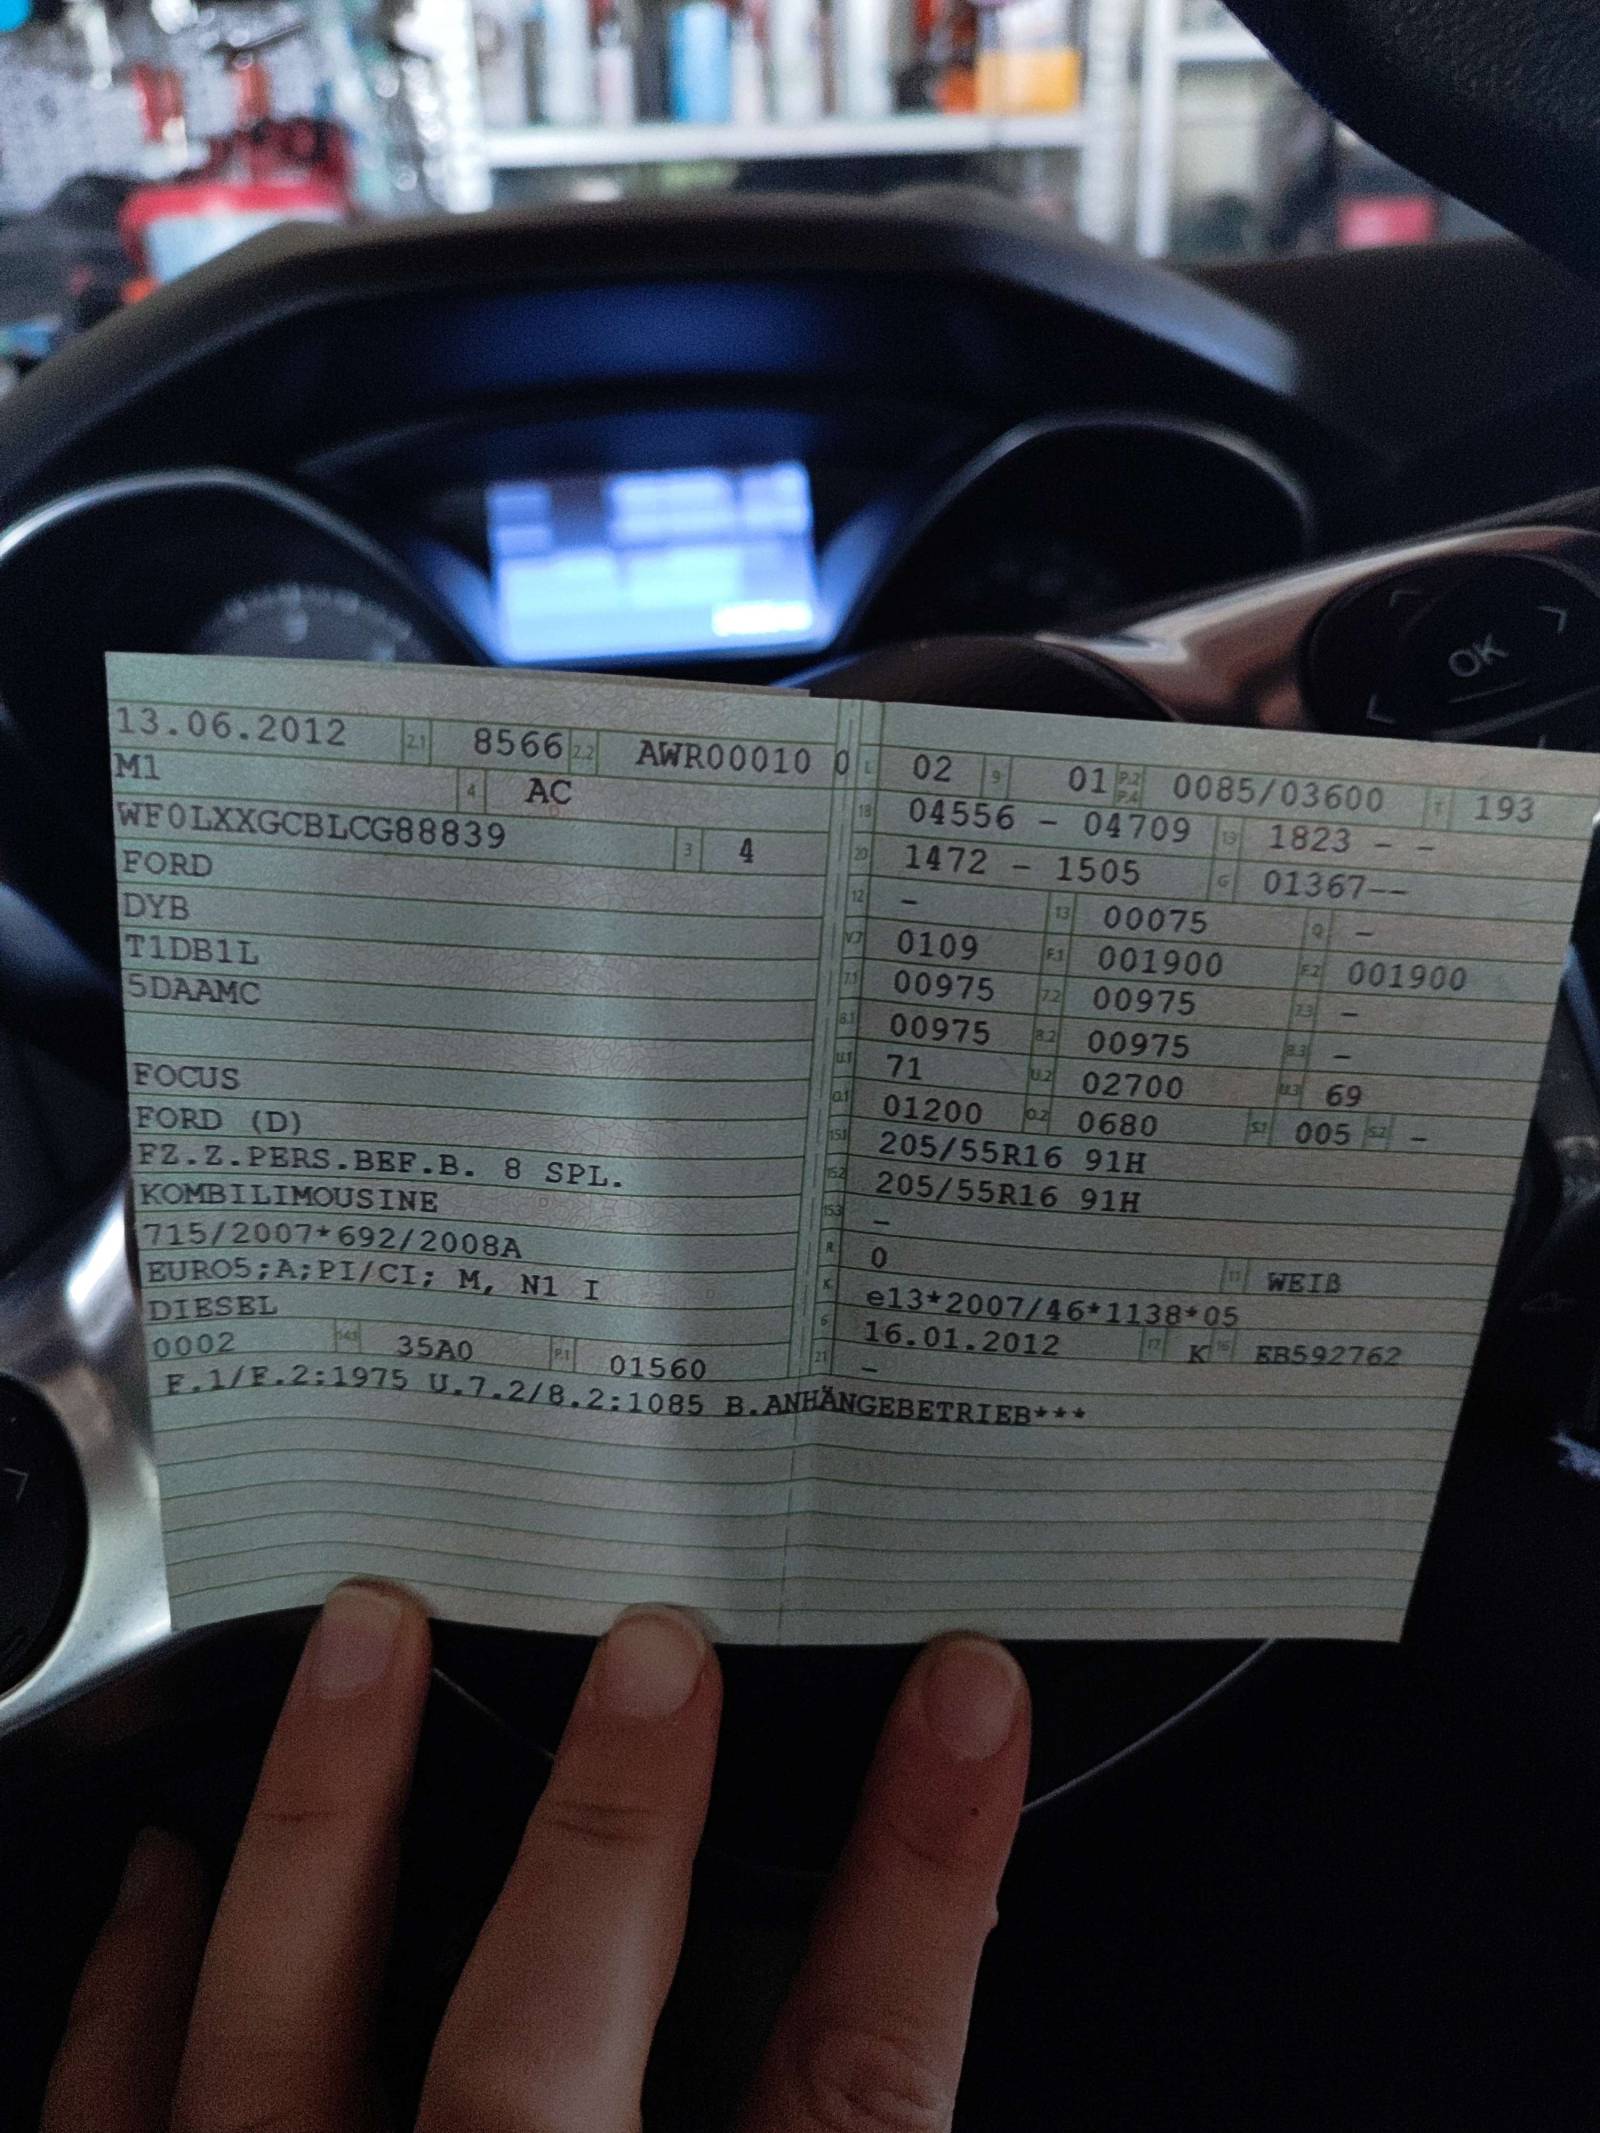 OK
13.06.2012 2.1 8566 2.2 AWR00010 0
M1 4 AC
WF0LXXGCBLCG88839 3 4
FORD
DYB
T1DB1L
5DAAMC
FOCUS
FORD (D)
FZ.Z.PERS.BEF.B. 8 SPL.
KOMBILIMOUSINE
715/2007*692/2008A
EURO5;A;PI/CI; M, N1 I
DIESEL
0002 14.1 35A0 P.1 01560
L 02 9 01 P.2 P.4 0085/03600 T 193
18 04556 - 04709 19 1823 - -
20 1472 - 1505 G 01367--
12 - 13 00075 Q -
V.7 0109 F.1 001900 F.2 001900
7.1 00975 7.2 00975 7.3 -
8.1 00975 8.2 00975 8.3 -
U.1 71 U.2 02700 U.3 69
O.1 01200 O.2 0680 S.1 005 S.2 -
15.1 205/55R16 91H
15.2 205/55R16 91H
15.3 -
R 0 11 WEIß
K e13*2007/46*1138*05
6 16.01.2012 17 K 16 EB592762
21 -
F.1/F.2:1975 U.7.2/8.2:1085 B.ANHÄNGEBETRIEB***